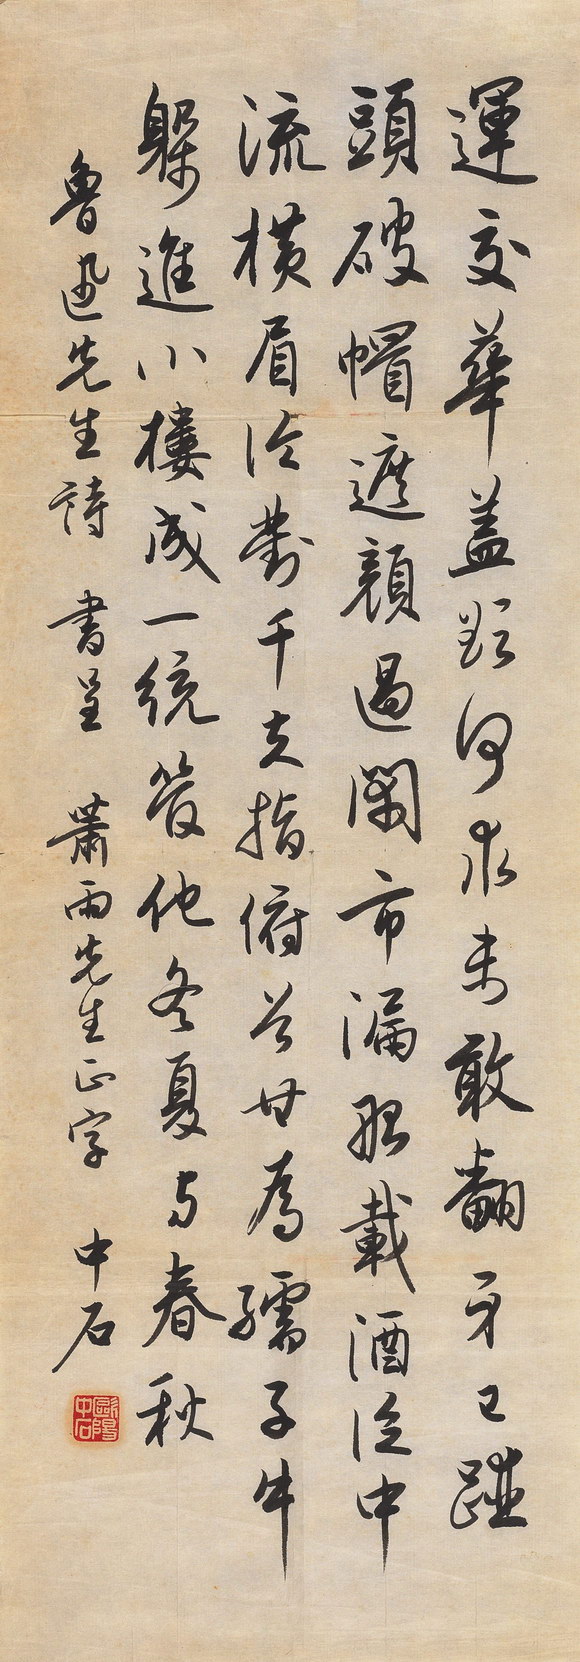 運交華蓋欲何求未敢翻身已碰
頭破帽遮顏過鬧市漏船載酒泛中
流橫眉冷對千夫指俯首甘為孺子牛
躲進小樓成一統管他冬夏與春秋
魯迅先生詩 書呈 蕭雨先生正字 中石
歐陽中石